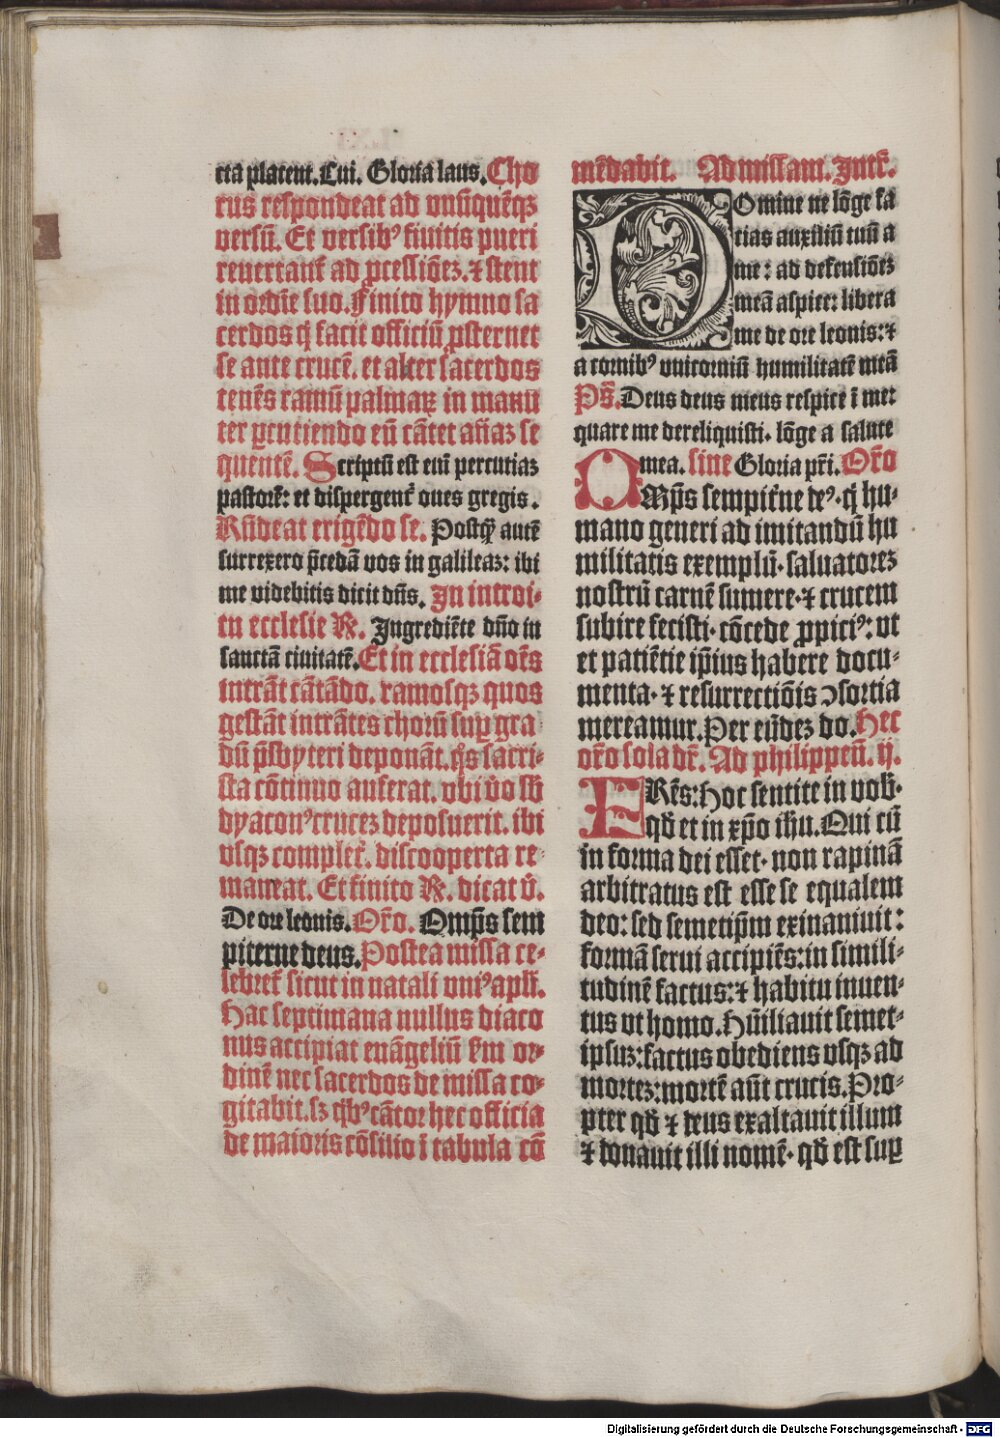 cta placent. Cui. Gloria laus. Cho
rus respondeat ad vnūquēqꝫ
versū. Et versibꝰ finitis pueri
reuertant᷑ ad ꝓcessiōeꝫ. ⁊ stent
in ordīe suo. Finito hymno sa
cerdos q̄ facit officiū ꝓsternet
se ante crucē. et alter sacerdos
tenēs ramū palmaꝝ in manu
ter ꝑcutiendo eū cātet añaꝫ se
quentē. Scriptū est eni percutiaꝫ
pastorē: et dispergent᷑ oues gregis.
Rn̄deat erigēdo se. Postqꝫ autē
surrexero p̄cedā vos in galileaꝫ: ibi
me videbitis dicit dn̄s. In introi-
tu ecclesie ℟. Ingrediēte dn̄o in
sanctā ciuitatē. Et in ecclesiā oēs
intrāt cātādo. ramosqꝫ quos
gestāt intrātes chorū suꝑ gra
dū p̄sbyteri deponāt. q̄s sacri-
sta cōtinuo auferat. vbi v̄o sb̄
dyaconꝰ cruceꝫ deposuerit. ibi
vsqꝫ complet᷑. discooperta re-
maneat. Et finito ℟. dicat v̄.
De ore leonis. Or̄o. Omp̄s sem
piterne deus. Postea missa ce-
lebret᷑ sicut in natali vniꝰ apl̄i.
Hac septimana nullus diaco
nus accipiat euāgeliū ẜm or-
dinē nec sacerdos de missa co-
gitabit. sꝫ qb̄ꝰ cātor hec officia
de maioris cōsilio ī tabula cō
mēdabit. Ad missam. Intr̄.
DOmine ne lōge fa
cias auxiliū tuū a
me: ad defensiōeꝫ
meā aspice: libera
me de ore leonis: ⁊
a cornibꝰ vnicorniū humilitatē meā
Ps̄. Deus deus meus respice ī me:
quare me dereliquisti. lōge a salute
mea. sine Gloria pr̄i. Or̄o
OMp̄s sempit᷑ne deꝰ. q̄ hu-
mano generi ad imitandū hu
militatis exemplū. saluatoreꝫ
nostrū carnē sumere. ⁊ crucem
subire fecisti. cōcede ꝓpiciꝰ: vt
et patiētie ip̄ius habere docu-
menta. ⁊ resurrectiōis ↄsortia
mereamur. Per eūdeꝫ do. Hec
or̄o sola dr̄. Ad philippeń. ij.
FRēs: Hoc sentite in vob̄.
qd̄ et in xp̄o ihu. Qui cū
in forma dei esset. non rapinā
arbitratus est esse se equalem
deo: sed semetip̄m exinaniuit:
formā serui accipiēs: in simili-
tudinē factus: ⁊ habitu inuen-
tus vt homo. Hūiliauit semet-
ipsuꝫ: factus obediens vsqꝫ ad
morteꝫ: mortē aūt crucis. Pro-
pter qd̄ ⁊ deus exaltauit illum
⁊ donauit illi nomē. qd̄ est suꝑ
Digitalisierung gefördert durch die Deutsche Forschungsgemeinschaft - DFG